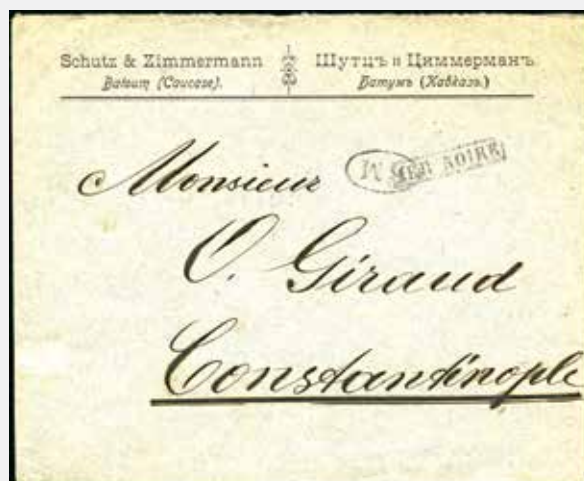 Schutz & Zimmermann
Batoum (Caucase).
Шутцъ и Циммерманъ
Батумъ (Кавказъ.)
MER NOIRE
Monsieur
O. Giraud
Constantinople